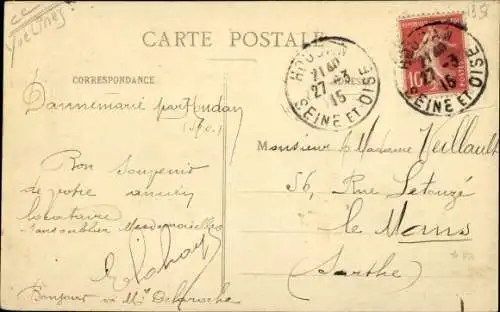 Yvelines
CARTE POSTALE
CORRESPONDANCE
Dannemarie par Houdan
(S. O.)
Bon Souvenir
de votre ancien
locataire
sans oublier Mesdemoiselles
Bonjour à Mr Delaroche
HOUDAN
21 40
27 -3
15
SEINE ET OISE
10
HOUDAN
21 40
27 -3
15
SEINE ET OISE
Monsieur & Madame Veillault
56, Rue Letouzé
le Mans
Sarthe